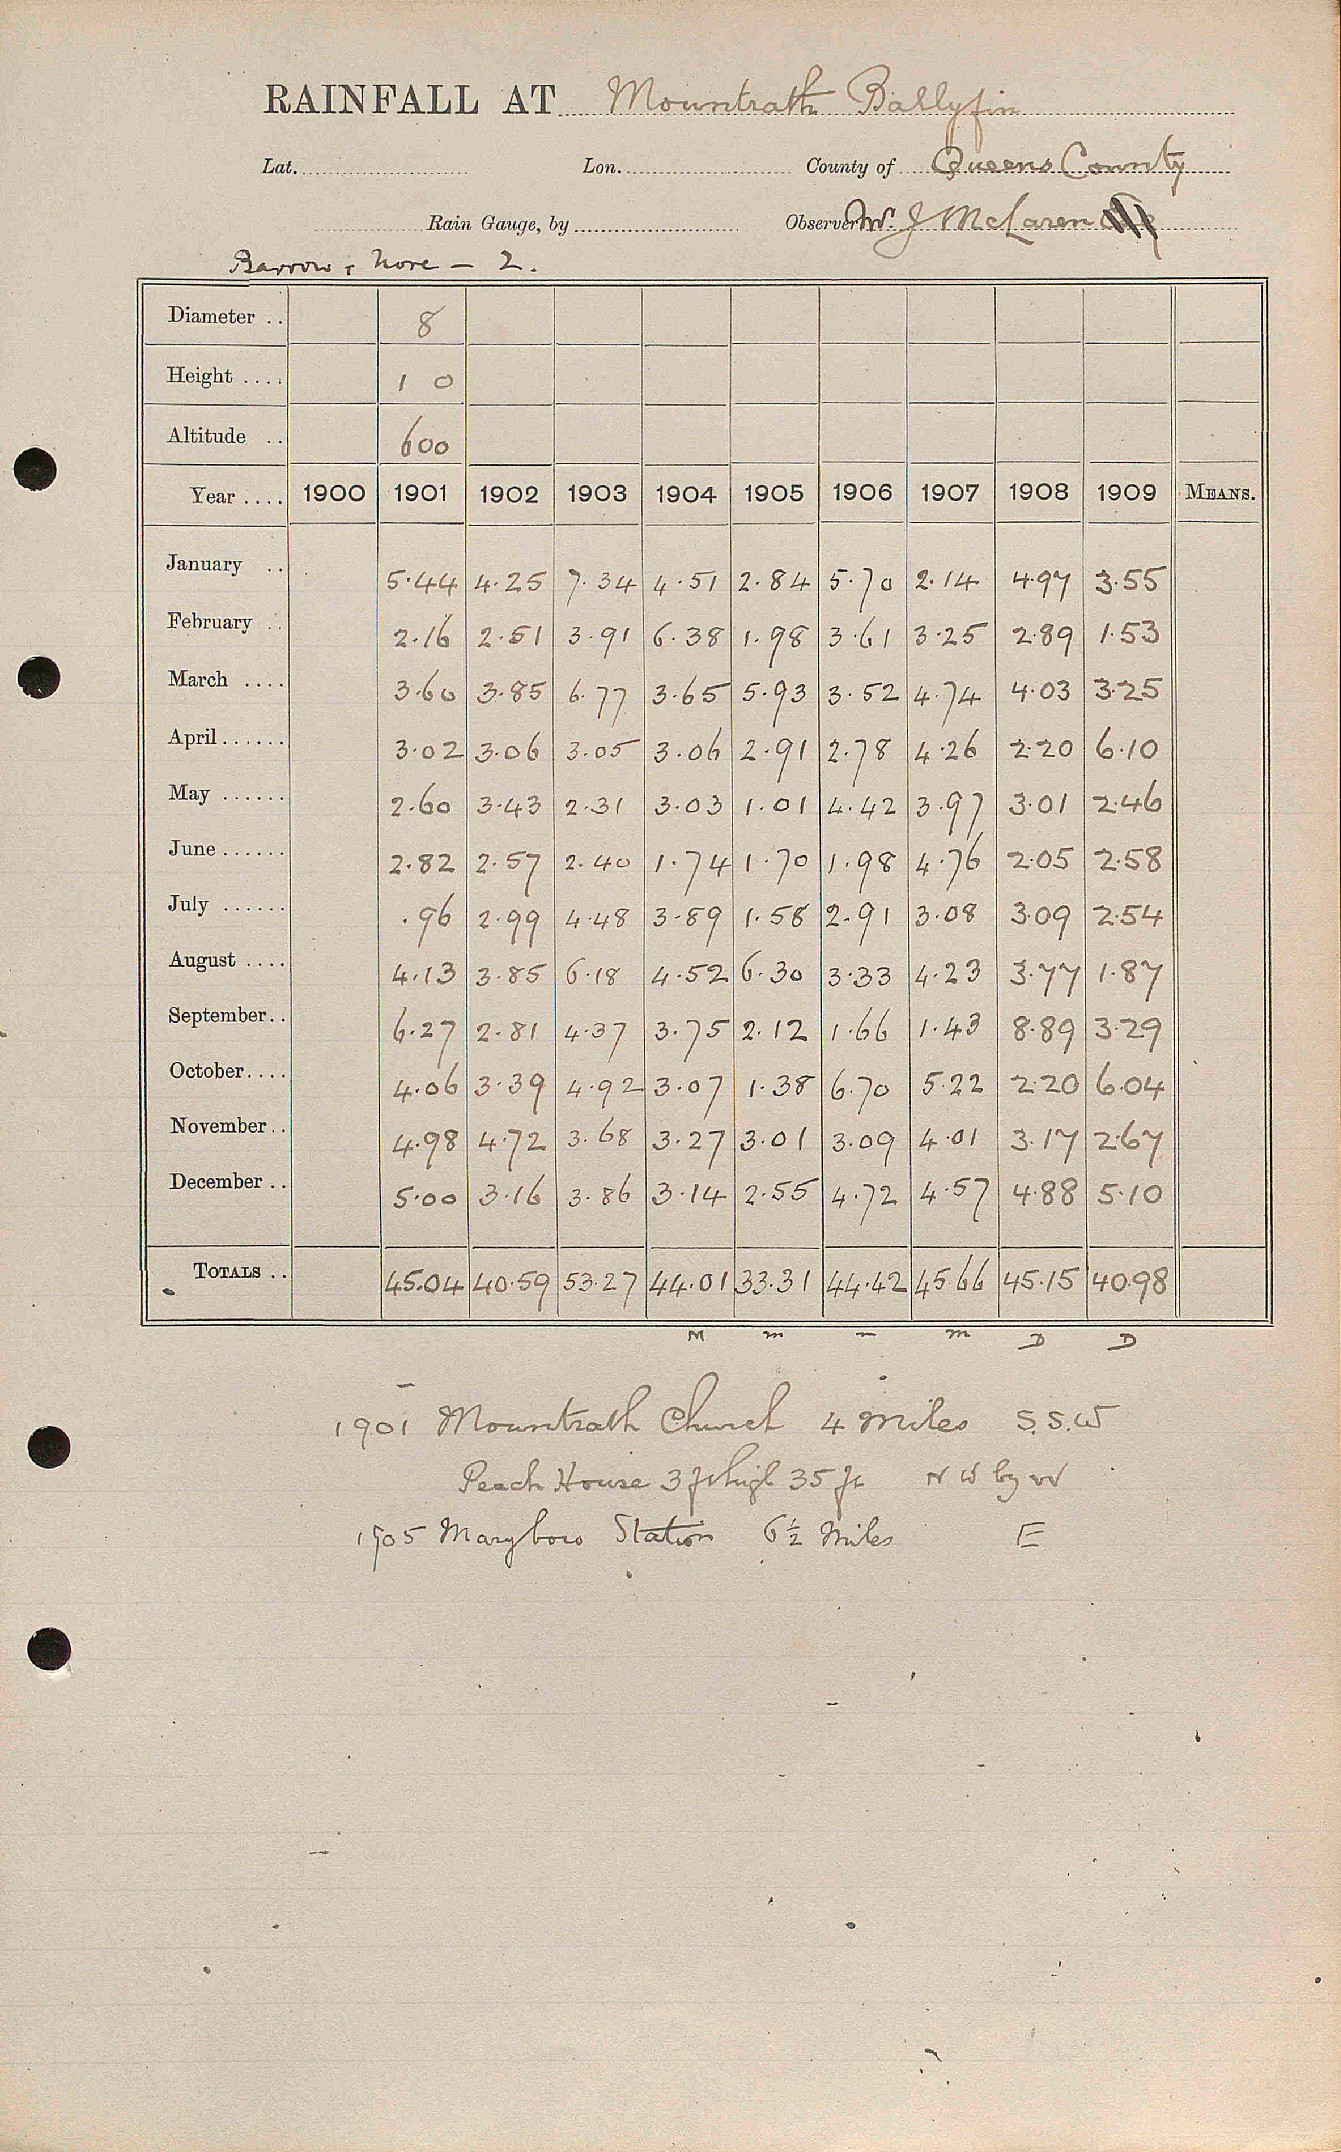 RAINFALL AT Mountrath Ballyfin
Lat. Lon. County of Queens County
Rain Gauge, by Observer W. J McLaren
Barrow & Nore - 2.
Diameter .. 8
Height .... 1 0
Altitude .. 600
Year .... 1900 1901 1902 1903 1904 1905 1906 1907 1908 1909 MEANS.
January .. 5.44 4.25 7.34 4.51 2.84 5.70 2.14 4.97 3.55
February .. 2.16 2.51 3.91 6.38 1.98 3.61 3.25 2.89 1.53
March .... 3.60 3.85 6.77 3.65 5.93 3.52 4.74 4.03 3.25
April ...... 3.02 3.06 3.05 3.06 2.91 2.78 4.26 2.20 6.10
May ...... 2.60 3.43 2.31 3.03 1.01 4.42 3.97 3.01 2.46
June ...... 2.82 2.57 2.40 1.74 1.70 1.98 4.76 2.05 2.58
July ...... .96 2.99 4.48 3.89 1.58 2.91 3.08 3.09 2.54
August .... 4.13 3.85 6.18 4.52 6.30 3.33 4.23 3.77 1.87
September .. 6.27 2.81 4.37 3.75 2.12 1.66 1.43 8.89 3.29
October .... 4.06 3.39 4.92 3.07 1.38 6.70 5.22 2.20 6.04
November .. 4.98 4.72 3.68 3.27 3.01 3.09 4.01 3.17 2.67
December .. 5.00 3.16 3.86 3.14 2.55 4.72 4.57 4.88 5.10
TOTALS .. 45.04 40.59 53.27 44.01 33.31 44.42 45.66 45.15 40.98
M m m D D
1901 Mountrath Church 4 Miles S.S.W
Peach House 3 ft high 35 ft N W by W
1905 Maryboro Station 6½ Miles E